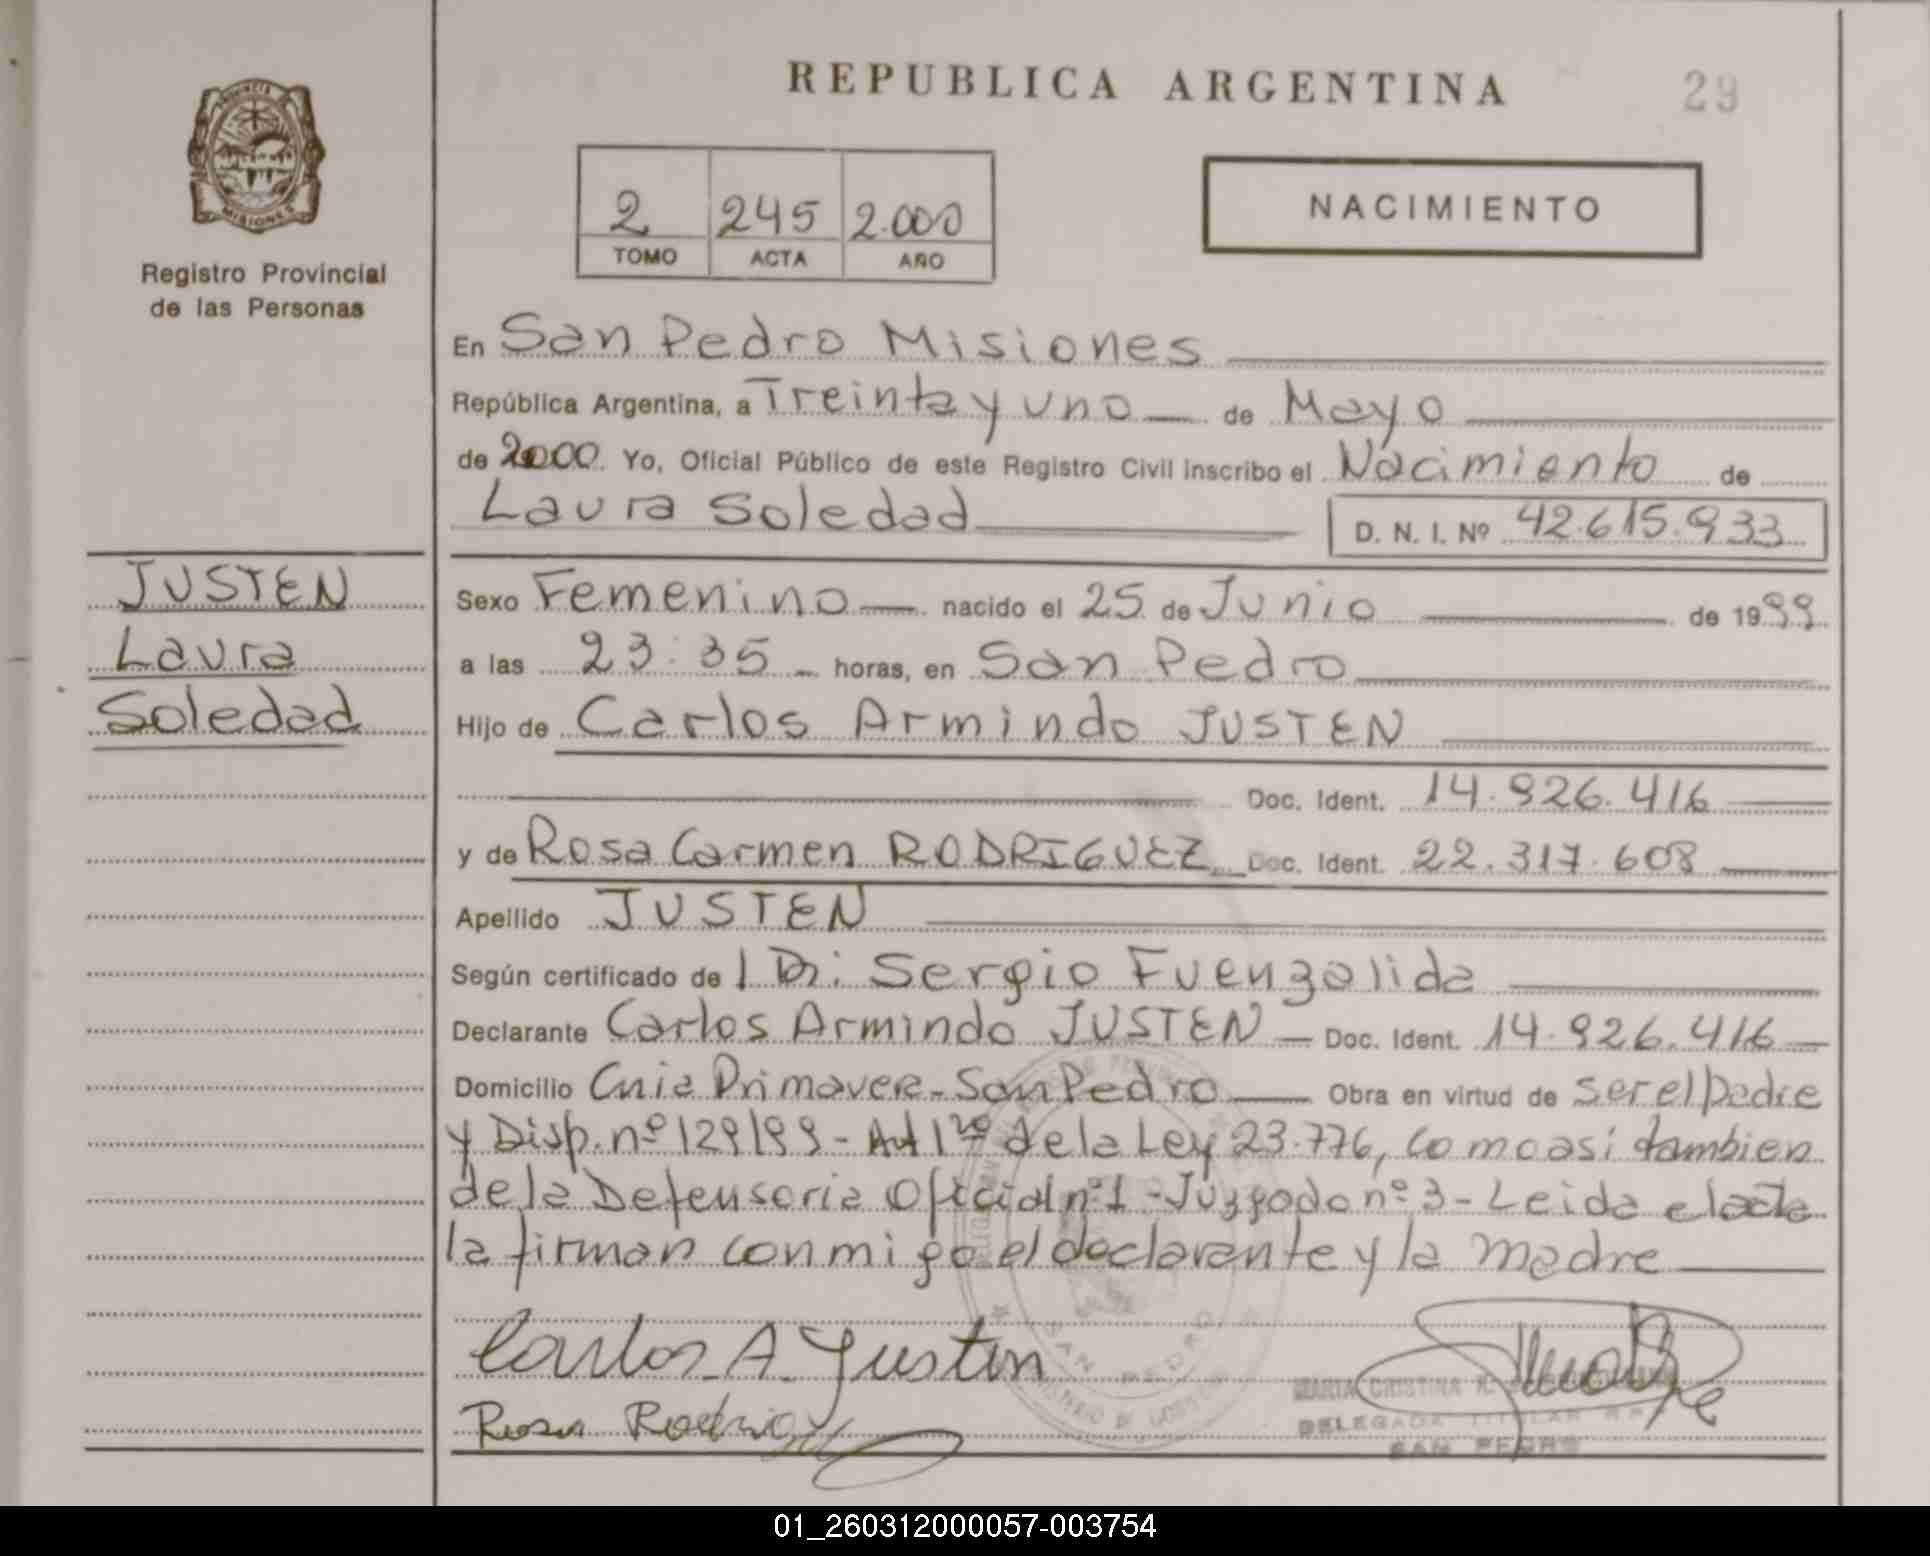 REPUBLICA ARGENTINA
29
PROVINCIA
MISIONES
Registro Provincial
de las Personas
2 245 2.000
TOMO ACTA AÑO
NACIMIENTO
En San Pedro Misiones
República Argentina, a Treinta y uno de Mayo
de 2000. Yo, Oficial Público de este Registro Civil inscribo el Nacimiento de
Laura Soledad D. N. I. Nº 42.615.933
JUSTEN
Laura
Soledad
Sexo Femenino nacido el 25 de Junio de 1999
a las 23:35 horas, en San Pedro
Hijo de Carlos Armindo JUSTEN
Doc. Ident. 14.926.416
y de Rosa Carmen RODRIGUEZ Doc. Ident. 22.317.608
Apellido JUSTEN
Según certificado de Dr: Sergio Fuenzalida
Declarante Carlos Armindo JUSTEN Doc. Ident. 14.926.416
Domicilio Cnia Primavera - San Pedro Obra en virtud de ser el Padre
y Disp. nº 129/99 - Art 1ro de la Ley 23.776, como asi tambien
de la Defensoria Oficial nº 1 - Juzgado nº 3 - Leida el acta
la firman conmigo el declarante y la madre
Carlos A. Justen
Rosa Rodrigu
MARIA CRISTINA
DELEGADA TITULAR
SAN PEDRO
SAN PEDRO
01_260312000057-003754